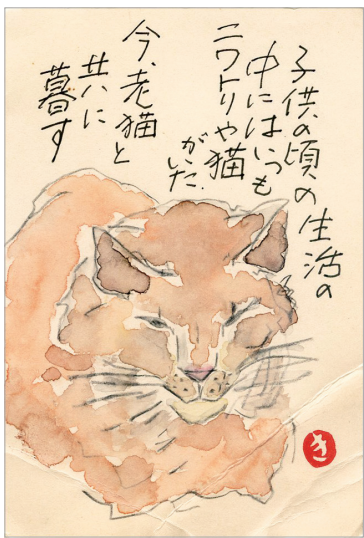 子供の頃の生活の
中にはいつも
ニワトリや猫
がいた.
今、老猫と
共に
暮す
き